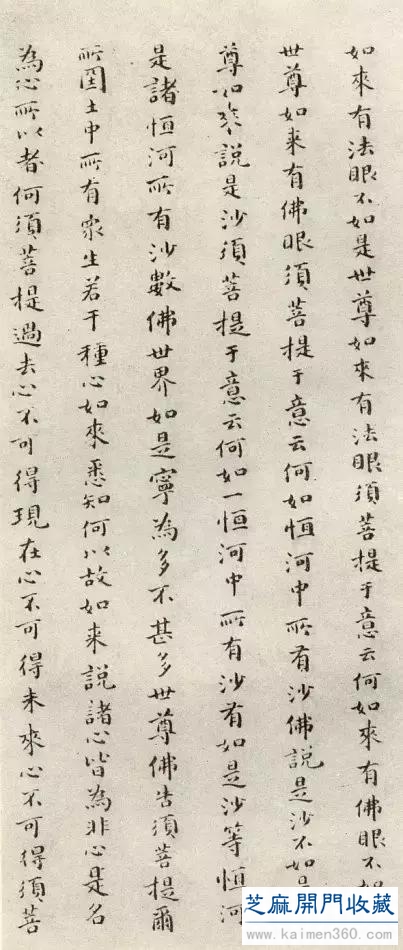 如來有法眼不如是世尊如來有法眼須菩提于意云何如來有佛眼不如
世尊如来有佛眼須菩提于意云何如恒河中所有沙佛說是沙不如是
尊如來說是沙須菩提于意云何如一恒河中所有沙有如是沙等恒河
是諸恒河所有沙數佛世界如是寧為多不甚多世尊佛告須菩提爾
所國土中所有衆生若干種心如來悉知何以故如来說諸心皆為非心是名
為心所以者何須菩提過去心不可得現在心不可得未來心不可得須菩
芝麻開門收藏
www.kaimen360.com